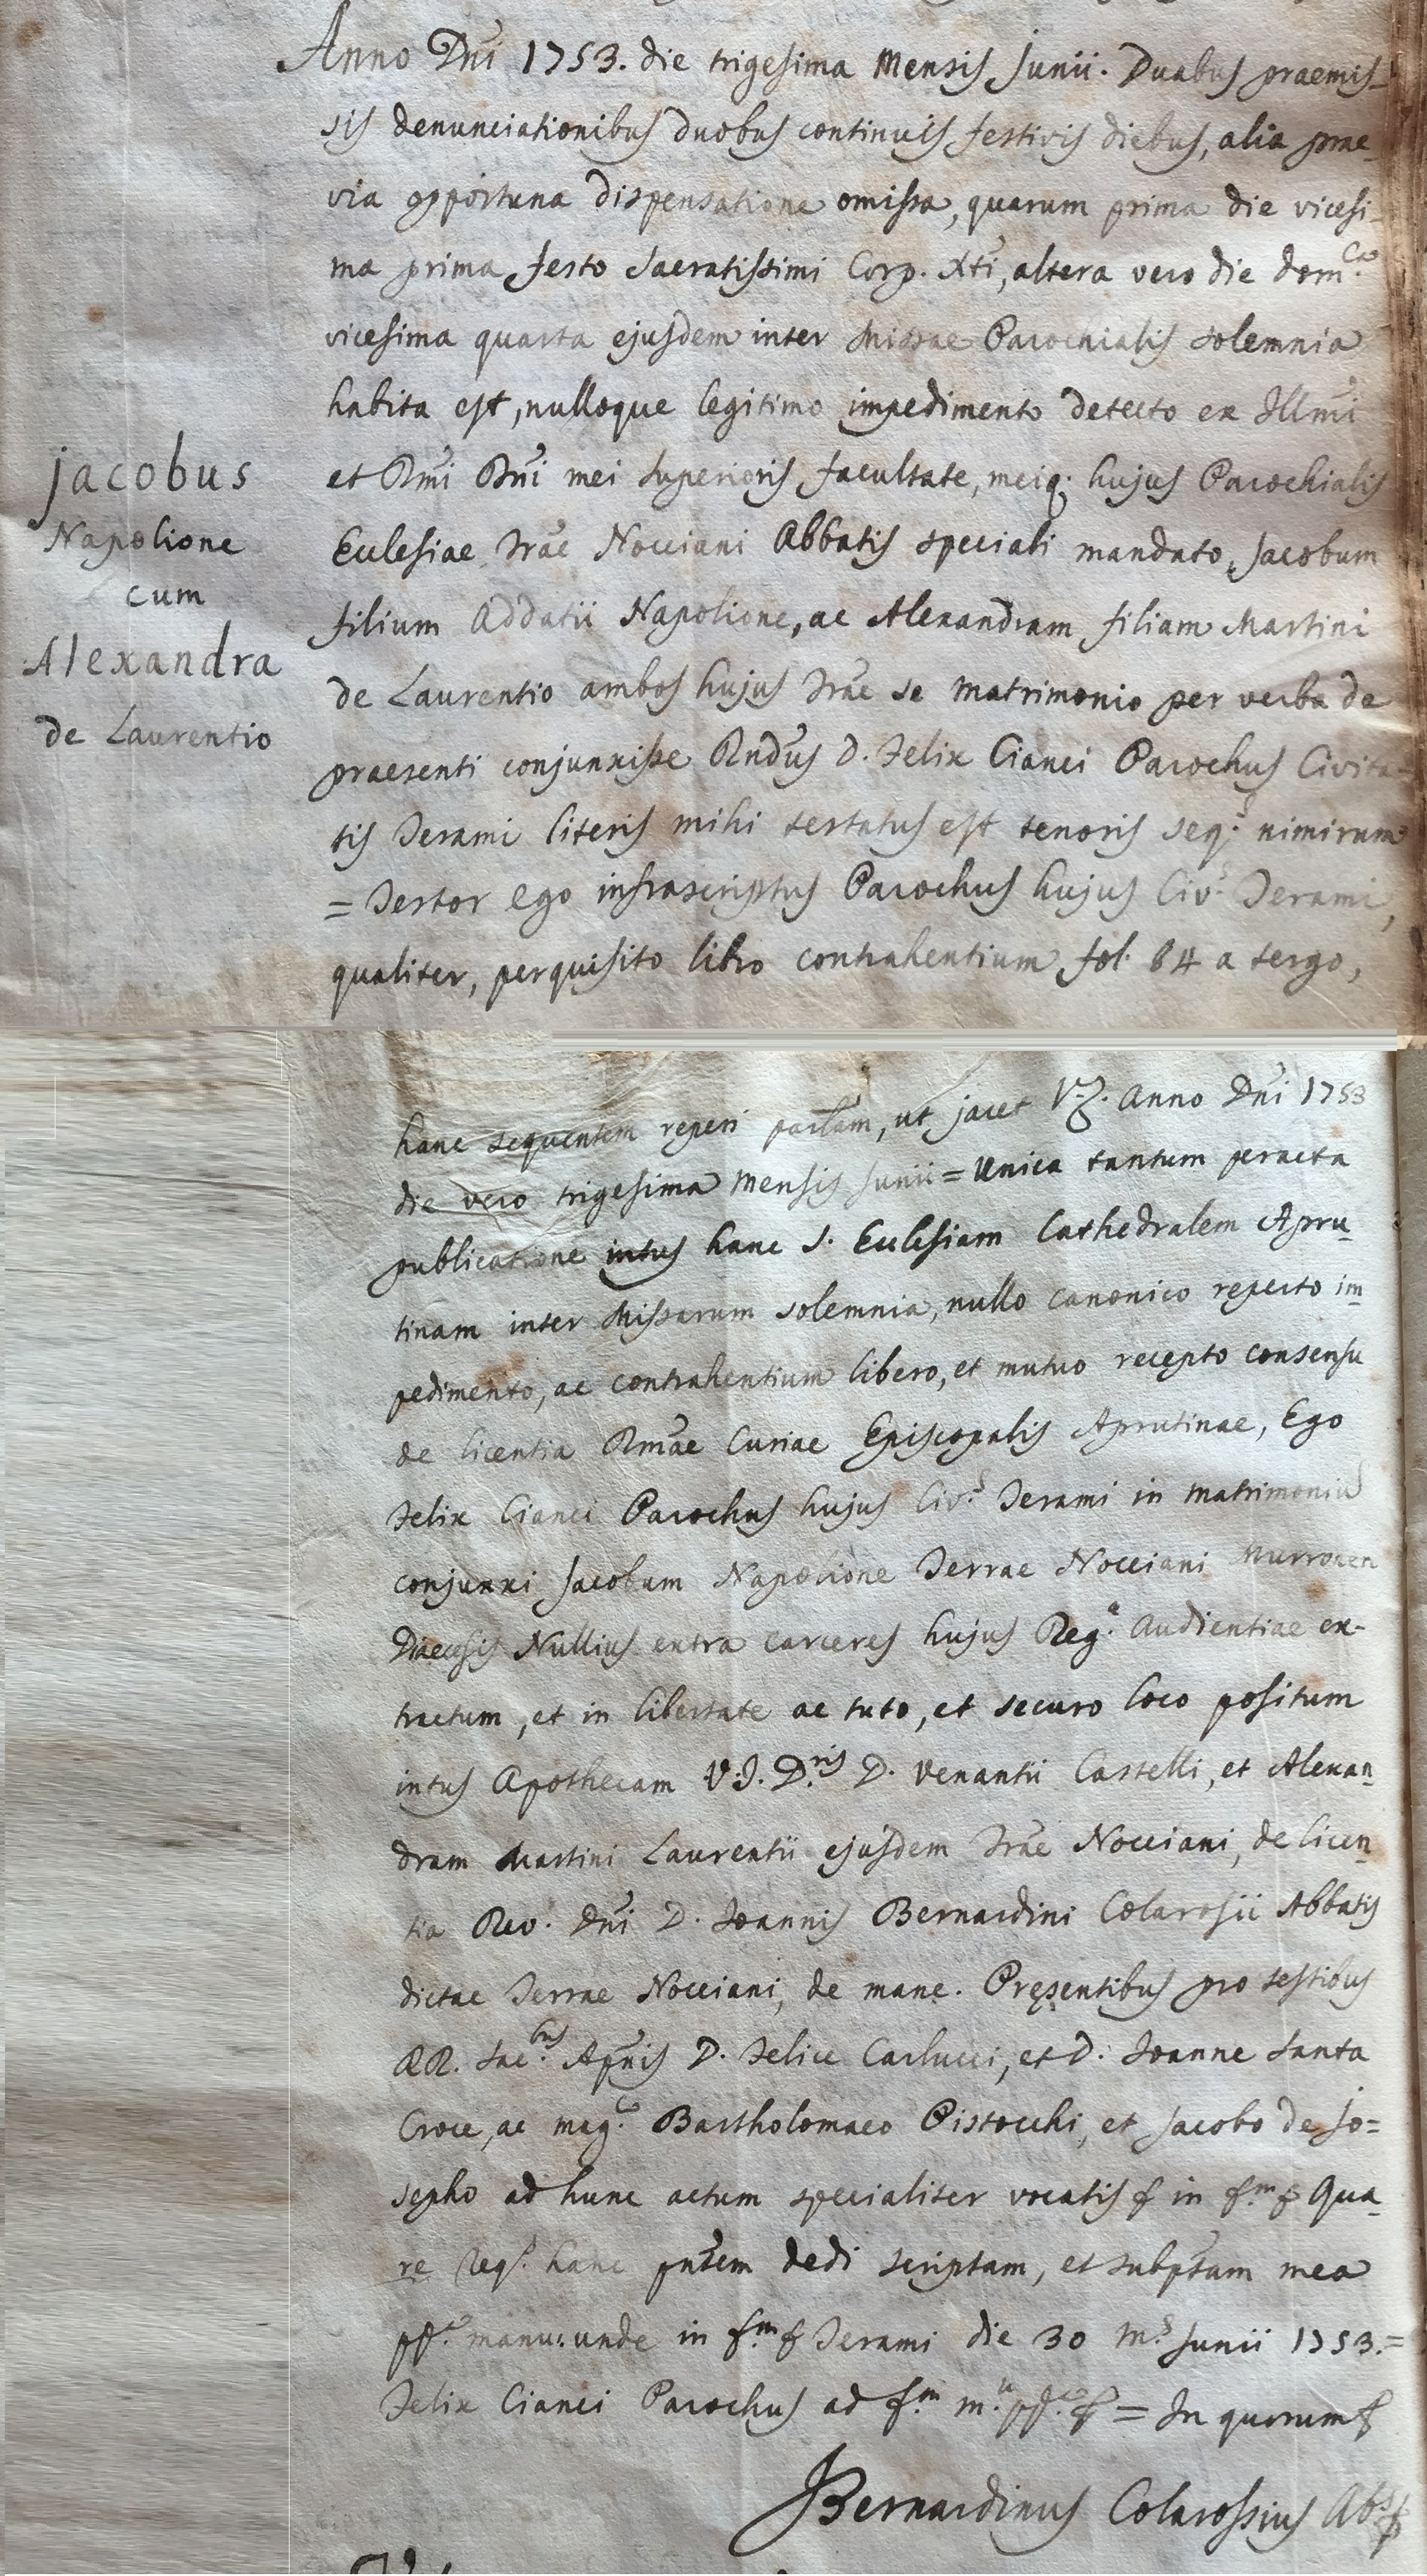 Anno Dñi 1753. die trigesima Mensis Junii. Duabus praemis-
sis denunciationibus duobus continuis festivis diebus, alia prae-
via opportuna dispensatione omissa, quarum prima die vicesi-
ma prima festo Sacratissimi Corp. Xti, altera vero die dom.ca
vicesima quarta ejusdem inter Missae Parochialis solemnia
habita est, nulloque legitimo impedimento detecto ex Illmi
et Rmi Dñi mei Superioris facultate, meiq; hujus Parochialis
Ecclesiae Trae Nocciani Abbatis speciali mandato, Jacobum
filium Addatii Napolione, ac Alexandram filiam Martini
de Laurentio ambos hujus Trae se matrimonio per verba de
praesenti conjunxisse Rndus D. Felix Cianci Parochus Civita-
tis Terami literis mihi testatus est tenoris seq.s nimirum
= Testor ego infrascriptus Parochus hujus Civ.s Terami,
qualiter, perquisito libro contrahentium fol. 64 a tergo,
Jacobus
Napolione
cum
Alexandra
de Laurentio
hanc sequentem reperi partam, ut jacet Vz. Anno Dñi 1753
die vero trigesima Mensis Junii = Unica tantum peracta
publicatione intus hanc S. Ecclesiam Cathedralem Apru-
tinam inter Missarum solemnia, nullo canonico reperto im-
pedimento, ac contrahentium libero, et mutuo recepto consensu
de licentia Rmae Curiae Episcopalis Aprutinae, Ego
Felix Cianci Parochus hujus Civ.s Terami in matrimoniu
conjunxi Jacobum Napolione Terrae Nocciani
Diaecesis Nullius extra carceres hujus Reg.ae Audientiae ex-
tractum, et in libertate ac tuto, et securo loco positum
intus Apothecam V.J.D.ris D. Venantii Castelli, et Alexan-
dram Martini Laurentii ejusdem Trae Nocciani, de licen-
tia Rev. Dñi D. Joannis Bernardini Colarosii Abbatis
dictae Terrae Nocciani, de mane. Pręsentibus pro testibus
RR. Sac.bus Apñis D. Felice Carlucci, et D. Joanne Santa
Croce, ac mag.co Bartholomaeo Pistocchi, et Jacobo de Jo=
sepho ad hunc actum specialiter vocatis & in f.m & Qua-
re req.s hanc pñtem dedi scriptam, et subptam mea
pp.a manu: unde in f.m & Terami die 30 m.s Junii 1753.=
Felix Cianci Parochus ad f.m m.u pp.a & = In quorum &
Bernardinus Colarossius Ab.s &